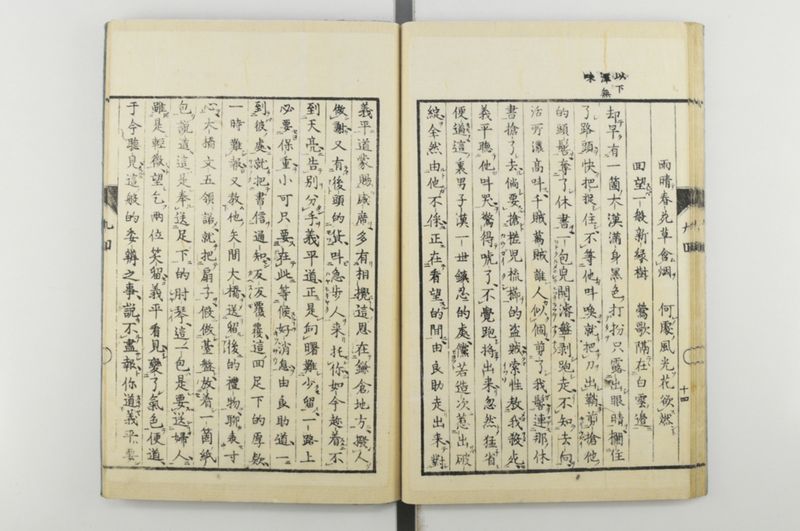 以下
深無
味
雨晴春苑草含烟 何處風光花欲燃
回望一般新緑樹 鶯歌隔在白雲邊
却早有一箇大漢滿身黑色打扮只露出眼睛攔住
了路頭快把捉住不等他叫喚就把刀出鞘剪搶他
的頭髻奪了休書一包兒開濬盤剥跑走不知去向
活所濃高叫千賊萬賊誰人似個剪了我髻連那休
書搶了去倘要搶搃兒梳擲的盗賊索性教我發死
義平聽他叫哭驚得呆了不覺跑將出來忽然猛省
便道這裏男子漢一世鎮忍的處儻若造次蔥出破
綻傘然由他不保正在看望的間由良助走出來對
十四
義平道蒙賜威席多有相擾這息在鎌倉地方撥人
做謝又有後頭的貨叫急步人來托你如今趁着不
到天亮告別分手義平道正是向曙難少留一路上
必要保重小可只要在此等候好消息由良助道一
到彼處就把書信通知友友覆覆這回足下的厚欵
一時難報又教他矢間大橋送留後的禮物聊表寸
心大橋文五領諾就把扇子假做薹盤放着一箇紙
包說道這是奉送足下的肘琴這一包是要送婦人
雖是輕微望乞兩位笑留義平看見變了氣色便道
于今聽見這般的委轉之事說不盡報你道義平要